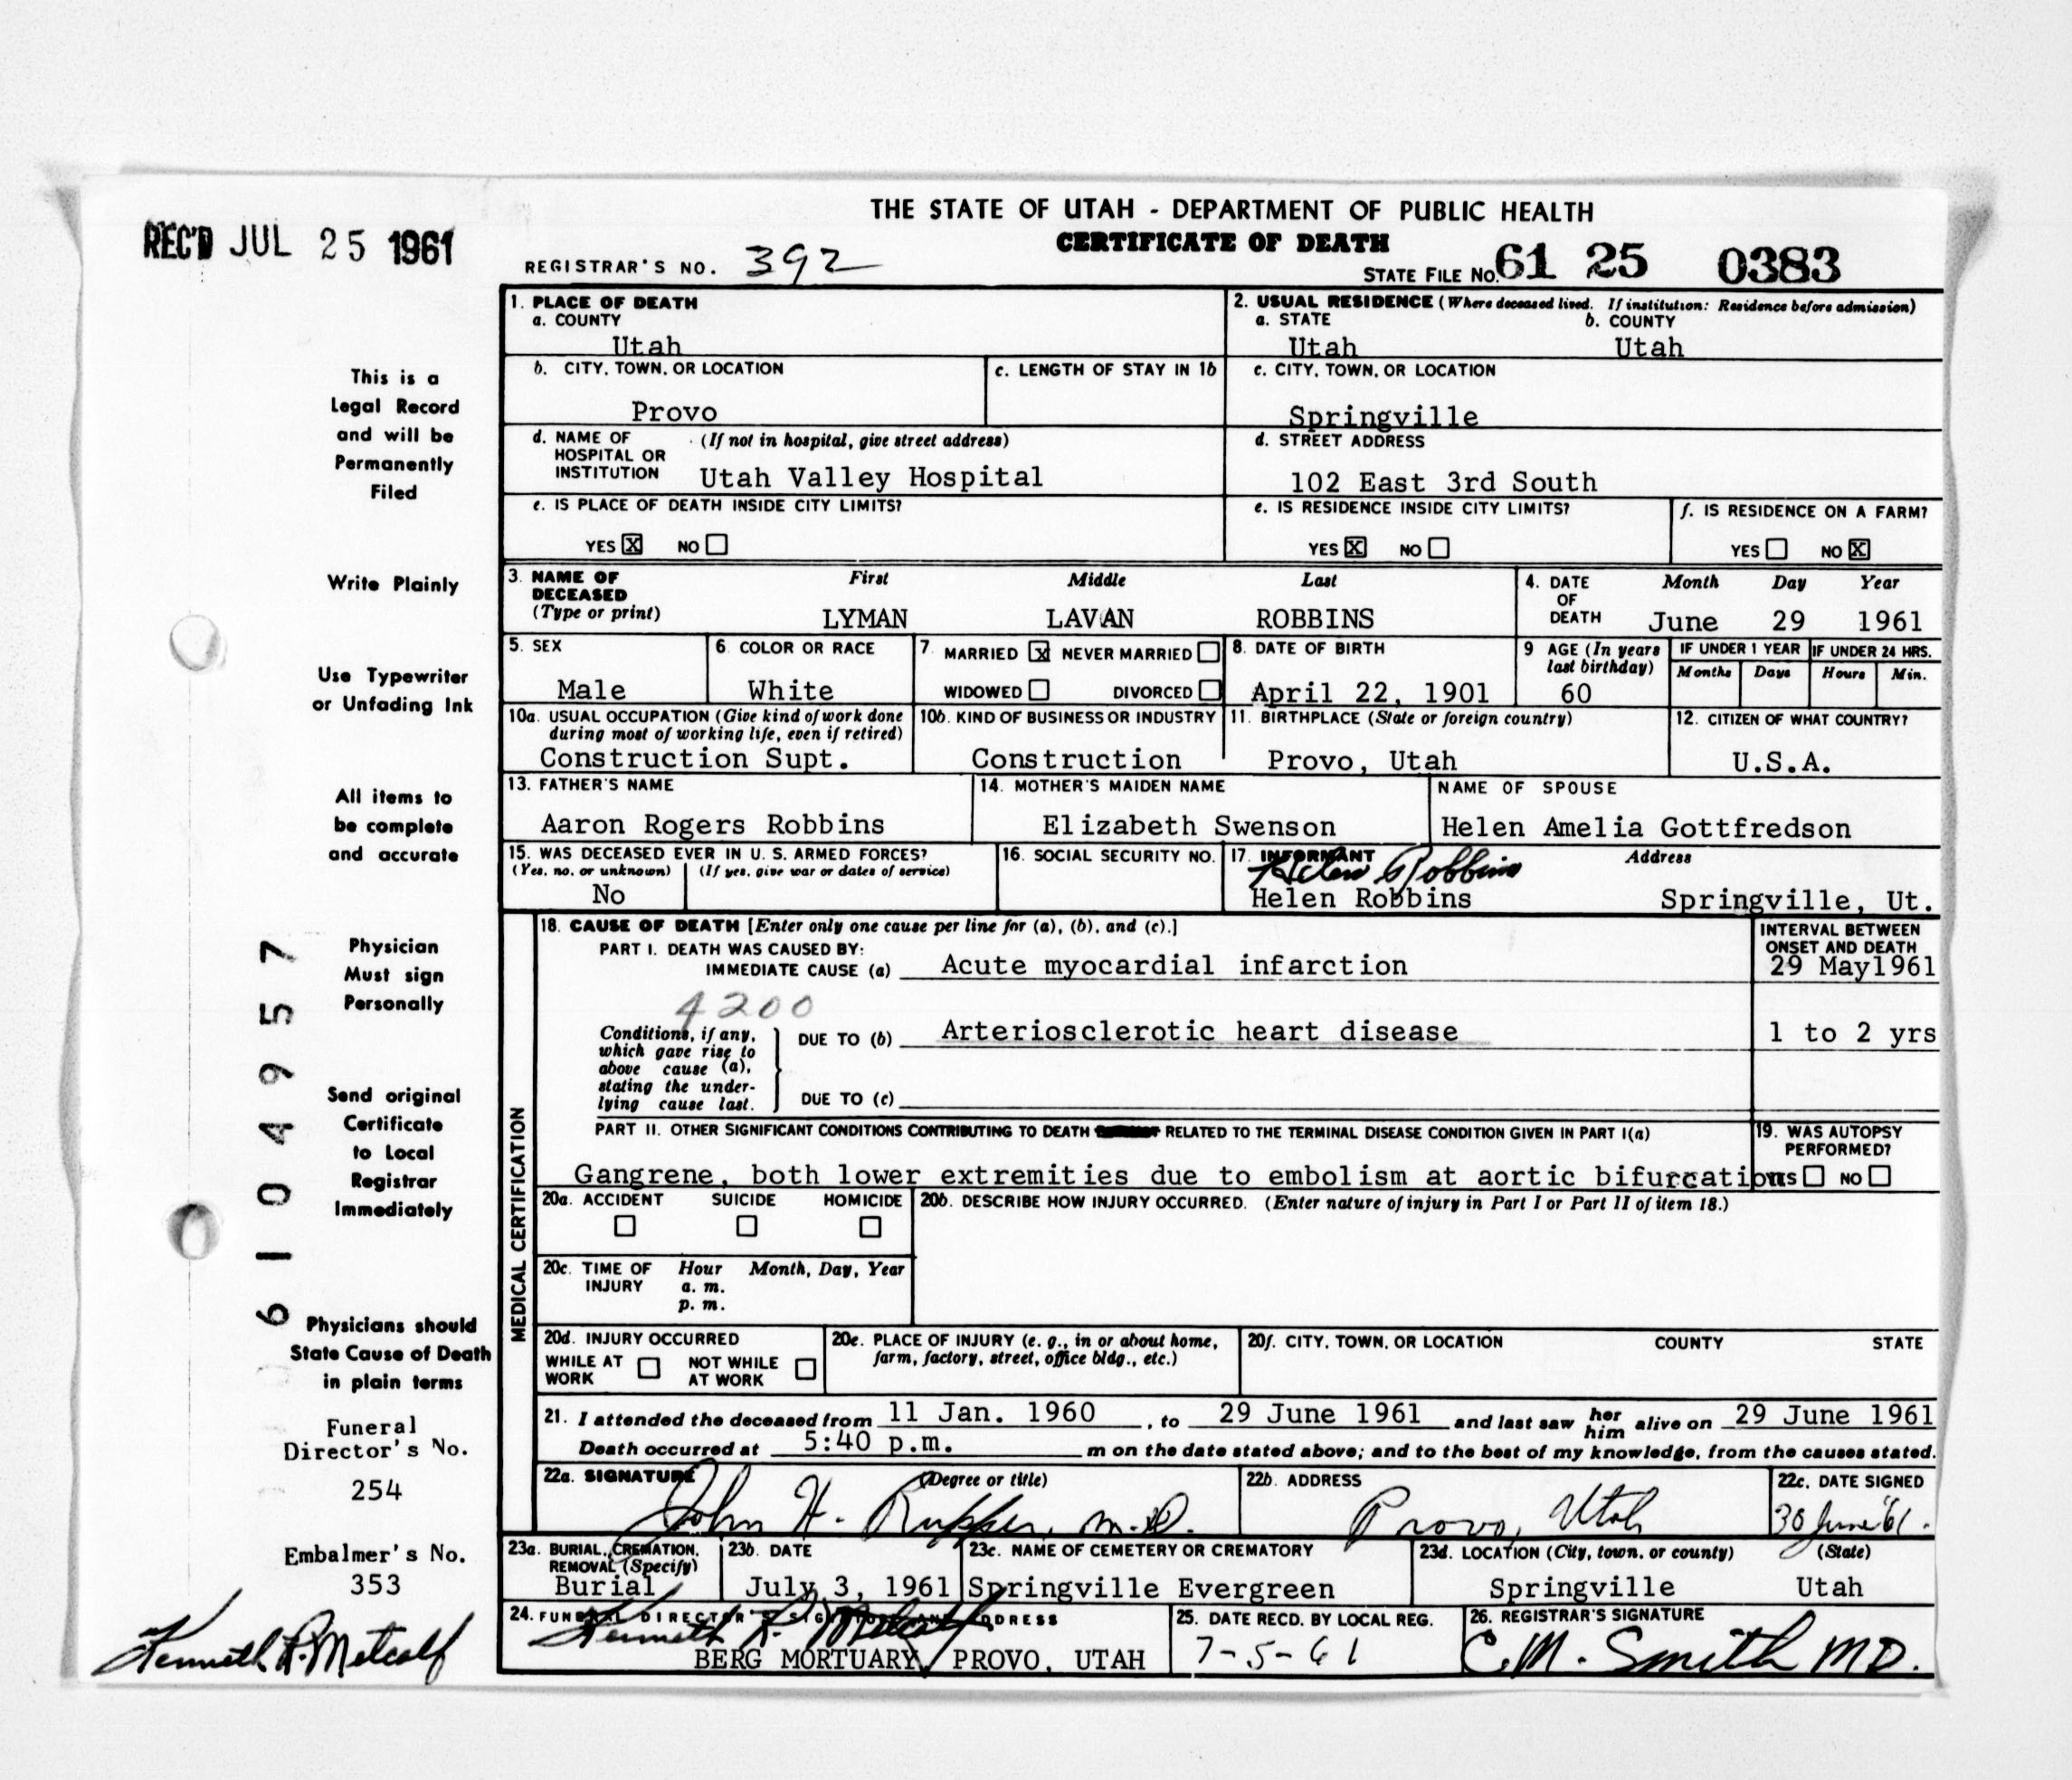 THE STATE OF UTAH - DEPARTMENT OF PUBLIC HEALTH
CERTIFICATE OF DEATH
REC'D JUL 25 1961
REGISTRAR'S NO. 392
STATE FILE NO. 61 25 0383
This is a
Legal Record
and will be
Permanently
Filed
Write Plainly
Use Typewriter
or Unfading Ink
All items to
be complete
and accurate
Physician
Must sign
Personally
Send original
Certificate
to Local
Registrar
Immediately
Physicians should
State Cause of Death
in plain terms
Funeral
Director's No.
254
Embalmer's No.
353
Kenneth R. Metcalf
6104957
1. PLACE OF DEATH
a. COUNTY
Utah
2. USUAL RESIDENCE (Where deceased lived. If institution: Residence before admission)
a. STATE b. COUNTY
Utah Utah
b. CITY, TOWN, OR LOCATION
Provo
c. LENGTH OF STAY IN 1b
c. CITY, TOWN, OR LOCATION
Springville
d. NAME OF (If not in hospital, give street address)
HOSPITAL OR
INSTITUTION Utah Valley Hospital
d. STREET ADDRESS
102 East 3rd South
e. IS PLACE OF DEATH INSIDE CITY LIMITS?
YES X NO
e. IS RESIDENCE INSIDE CITY LIMITS?
YES X NO
f. IS RESIDENCE ON A FARM?
YES NO X
3. NAME OF First Middle Last
DECEASED
(Type or print) LYMAN LAVAN ROBBINS
4. DATE Month Day Year
OF
DEATH June 29 1961
5. SEX
Male
6. COLOR OR RACE
White
7. MARRIED X NEVER MARRIED
WIDOWED DIVORCED
8. DATE OF BIRTH
April 22, 1901
9 AGE (In years
last birthday)
60
IF UNDER 1 YEAR IF UNDER 24 HRS.
Months Days Hours Min.
10a. USUAL OCCUPATION (Give kind of work done
during most of working life, even if retired)
Construction Supt.
10b. KIND OF BUSINESS OR INDUSTRY
Construction
11. BIRTHPLACE (State or foreign country)
Provo, Utah
12. CITIZEN OF WHAT COUNTRY?
U.S.A.
13. FATHER'S NAME
Aaron Rogers Robbins
14. MOTHER'S MAIDEN NAME
Elizabeth Swenson
NAME OF SPOUSE
Helen Amelia Gottfredson
15. WAS DECEASED EVER IN U. S. ARMED FORCES?
(Yes, no, or unknown) (If yes, give war or dates of service)
No
16. SOCIAL SECURITY NO.
17. INFORMANT Address
Helen Robbins
Helen Robbins Springville, Ut.
MEDICAL CERTIFICATION
18. CAUSE OF DEATH [Enter only one cause per line for (a), (b), and (c).]
PART I. DEATH WAS CAUSED BY:
IMMEDIATE CAUSE (a) Acute myocardial infarction
INTERVAL BETWEEN
ONSET AND DEATH
29 May1961
4200
Conditions, if any,
which gave rise to
above cause (a),
stating the under-
lying cause last.
DUE TO (b) Arteriosclerotic heart disease
1 to 2 yrs
DUE TO (c)
PART II. OTHER SIGNIFICANT CONDITIONS CONTRIBUTING TO DEATH RELATED TO THE TERMINAL DISEASE CONDITION GIVEN IN PART I(a)
Gangrene, both lower extremities due to embolism at aortic bifurcations
19. WAS AUTOPSY
PERFORMED?
YES NO
20a. ACCIDENT SUICIDE HOMICIDE
20b. DESCRIBE HOW INJURY OCCURRED. (Enter nature of injury in Part I or Part II of item 18.)
20c. TIME OF Hour Month, Day, Year
INJURY a. m.
p. m.
20d. INJURY OCCURRED
WHILE AT NOT WHILE
WORK AT WORK
20e. PLACE OF INJURY (e. g., in or about home,
farm, factory, street, office bldg., etc.)
20f. CITY, TOWN, OR LOCATION COUNTY STATE
21. I attended the deceased from 11 Jan. 1960, to 29 June 1961 and last saw her him alive on 29 June 1961
Death occurred at 5:40 p.m. m on the date stated above; and to the best of my knowledge, from the causes stated.
22a. SIGNATURE (Degree or title)
John H. Rupper, M.D.
22b. ADDRESS
Provo, Utah
22c. DATE SIGNED
30 June '61.
23a. BURIAL, CREMATION,
REMOVAL (Specify)
Burial
23b. DATE
July 3, 1961
23c. NAME OF CEMETERY OR CREMATORY
Springville Evergreen
23d. LOCATION (City, town, or county) (State)
Springville Utah
24. FUNERAL DIRECTOR'S SIGNATURE AND ADDRESS
Kenneth R. Metcalf
BERG MORTUARY, PROVO, UTAH
25. DATE RECD. BY LOCAL REG.
7-5-61
26. REGISTRAR'S SIGNATURE
C. M. Smith MD.